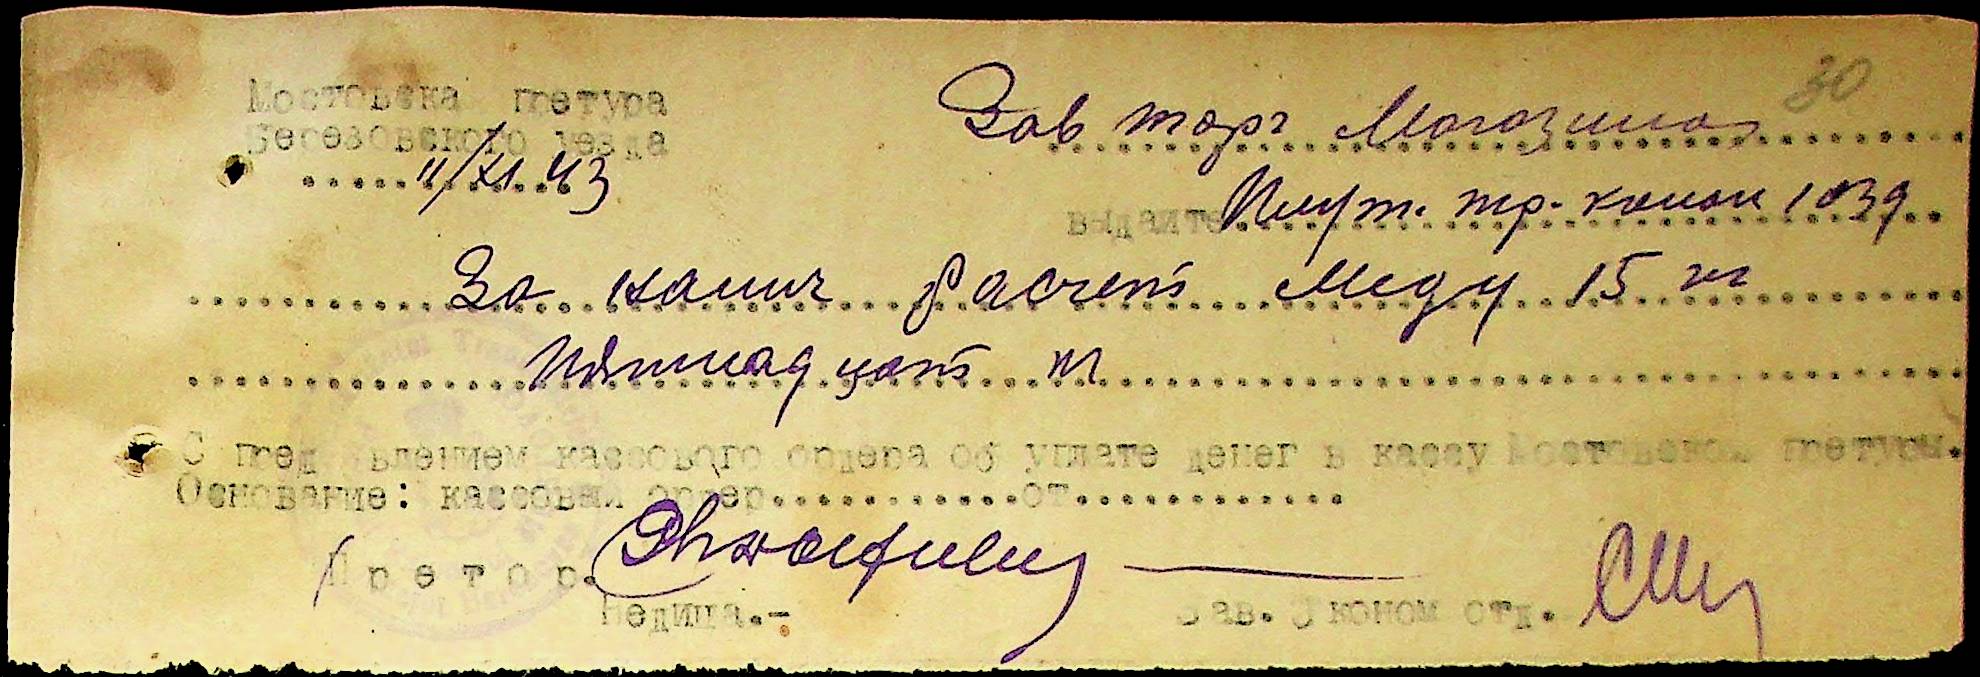 30
Мостовска претура
Березовского уезда
11/XI 43
Зав торг Магазином
выдайте тр. 1039
За налич Расчет Меду 15 кг
Пятнадцать кг
С пред'явлением кассового ордера об уплате денег в кассу Мостовской претуры.
Основание: кассовый ордер.............от..............
Претор.
Бедица.-
Зав. Эконом отд.